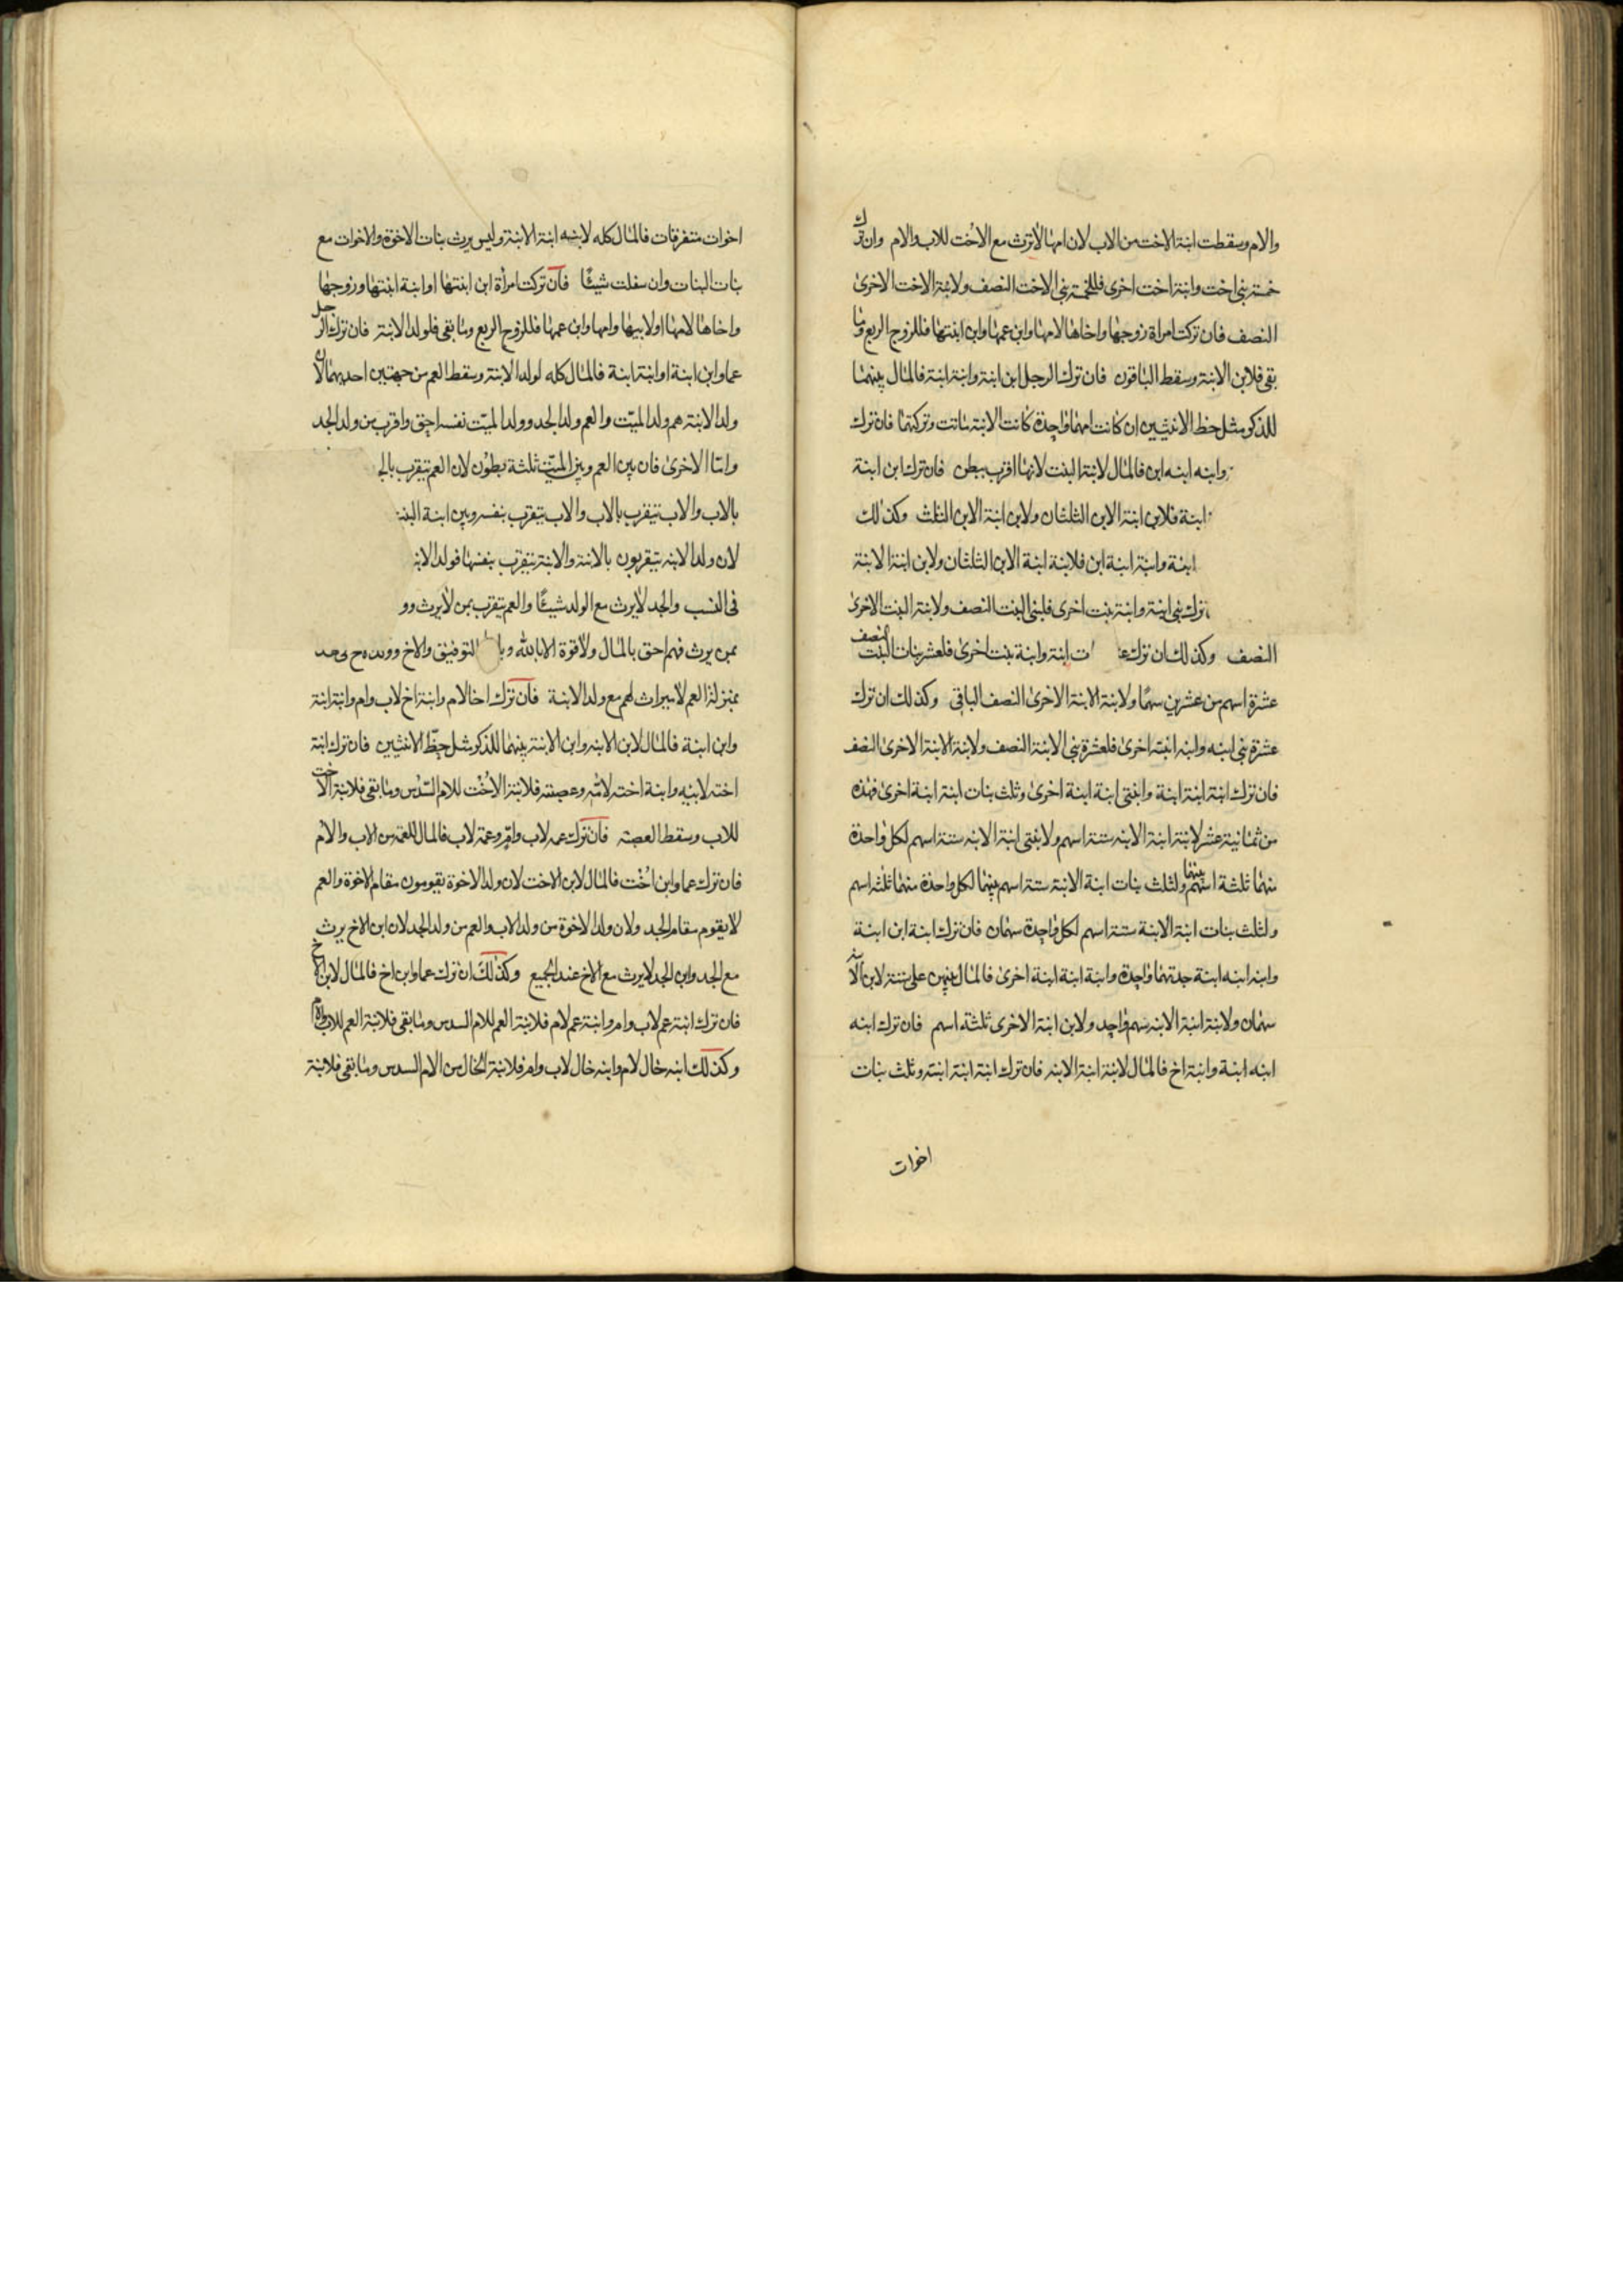 والام وسقطت ابنة الاخت من الاب لان امها لا ترث مع الاخت للاب والام وان ترك
خمسة بنى اخت وابنة اخت اخرى فللخمسة بنى الاخت النصف ولابنة الاخت الاخرى
النصف فان تركت امراة زوجها واخاها لامها وابن عمها وابن ابنتها فللزوج الربع وما
بقى فلابن الابنة وسقط الباقون فان ترك الرجل ابن ابنة وابنة ابنة فالمال بينهما
للذكر مثل حظ الانثيين ان كانت امهما واحدة كانت الابنة ماتت وتركتهما فان ترك
وابنه ابنه ابن فالمال لابنة البنت لانها اقرب ببطن فان ترك ابن ابنة
ابنة فلابن ابنة الابن الثلثان ولابن ابنة الابن الثلث وكذلك
ابنة وابنة ابنة ابن فلابنة ابنة الابن الثلثان ولابن ابنة الابنة
ترك بنى ابنة وابنة بنت اخرى فلبنى البنت النصف ولابنة البنت الاخرى
النصف وكذلك ان ترك ابنة وابنة بنت اخرى فلعشر بنات البنت النصف
عشرة اسهم من عشرين سهما ولابنة الابنة الاخرى النصف الباقى وكذلك ان ترك
عشرة بنى ابنه وابنه ابنة اخرى فلعشرة بنى الابنة النصف ولابنة الابنة الاخرى النصف
فان ترك ابنة ابنة ابنة وابنتى ابنة ابنة اخرى وثلث بنات ابنة ابنة اخرى فهذه
من ثمانية عشر لابنة ابنة الابنه ستة اسهم ولابنتى ابنة الابنه ستة اسهم لكل واحدة
منهما ثلثة اسهم بينهما ولثلث بنات ابنة الابنة ستة اسهم بينهما لكل واحدة منهما ثلثه اسهم
ولثلث بنات ابنة الابنة ستة اسهم لكل واحدة سهمان فان ترك ابنة ابن ابنة
وابنه ابنه ابنة جدتهما واحدة وابنة ابنة ابنة اخرى فالمال بينهن على ستة لابن الابنه
سهمان ولابنة ابنة الابنه سهم واحد ولابن ابنة الاخرى ثلثة اسهم فان ترك ابنه
ابنه ابنة وابنة اخ فالمال لابنة ابنة الابنه فان ترك ابنة ابنة ابنة وثلث بنات
اخوات
اخوات متفرقات فالمال كله لابنه ابنة الابنة وليس يرث بنات الاخوة والاخوات مع
بنات البنات وان سفلت شيئا فان تركت امراة ابن ابنتها او ابنة ابنتها وزوجها
واخاها لامها او لابيها وامها وابن عمها فللزوج الربع وما بقى فلولد الابنة فان ترك الرجل
عما وابن ابنة او ابنة ابنة فالمال كله لولد الابنة وسقط العم من جهتين احديهما لان
ولد الابنة هم ولد الميت والعم ولد الجد وولد الميت نفسه احق واقرب من ولد الجد
واما الاخرى فان بين العم وبين الميت ثلثة بطون لان العم يتقرب بالج
بالاب والاب يتقرب بالاب والاب يتقرب بنفسه وبين ابنة البنت
لان ولد الابنه يتقربون بالابنة والابنة تتقرب بنفسها فولد الابنة
فى النسب والجد لا يرث مع الولد شيئا والعم يتقرب بمن لا يرث وو
بمن يرث فهم احق بالمال ولا قوة الا بالله وبا التوفيق والاخ وولده
بمنزلة العم لا ميراث لهم مع ولد الابنة فان ترك اخا لام وابنة اخ لاب وام وابنة ابنة
وابن ابنة فالمال لابن الابنه وابن الابنة بينهما للذكر مثل حظ الانثيين فان ترك ابنة
اخته لابيه وابنة اخته لامه وعصبته فلابنة الاخت للام السدس وما بقى فلابنة الاخت
للاب وسقط العصبة فان ترك عمه لاب وام وعمة لاب فالمال للعمة من الاب والام
فان ترك عما وابن اخت فالمال لابن الاخت لان ولد الاخوة يقومون مقام الاخوة والعم
لا يقوم مقام الجد ولان ولد الاخوة من ولد الاب والعم من ولد الجد لان ابن الاخ يرث
مع الجد وابن الجد لا يرث مع الاخ عند الجميع وكذلك ان ترك عما وابن اخ فالمال لابن الاخ
فان ترك ابنة عم لاب وام وابنة عم لام فلابنة العم للام السدس وما بقى فلابنة العم للاب والام
وكذلك ابنه خال لام وابنه خال لاب وام فلابنة الخال من الام السدس وما بقى فلابنة